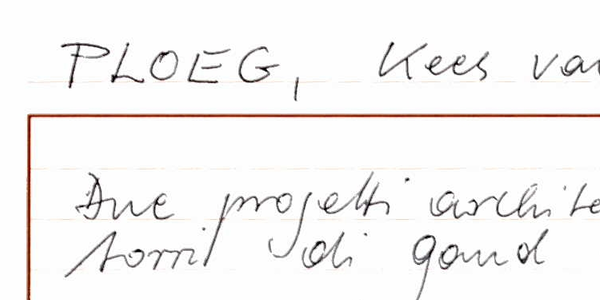 PLOEG, Kees va
Due progetti archite
torri di gand